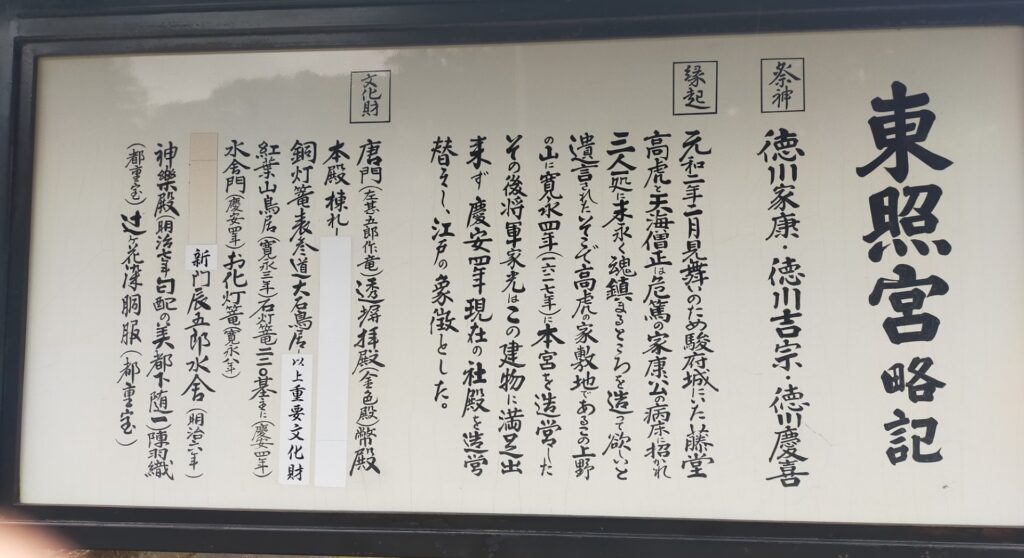 東照宮略記
祭神
徳川家康・徳川吉宗・徳川慶喜
縁起
元和二年二月見舞いのため駿府城にいた藤堂
高虎と天海僧正は危篤の家康公の病床に招かれ
三人一処に末永く魂鎮まるところを造って欲しいと
遺言された そこで高虎の家敷地であるこの上野
の山に寛永四年(一六二七年)に本宮を造営した
その後将軍家光はこの建物に満足出
来ず 慶安四年現在の社殿を造営
替えし、江戸の象徴とした。
文化財
唐門(左甚五郎作竜)透塀拝殿(金色殿)幣殿
本殿棟札
銅灯篭表参道大石鳥居 以上重要文化財
紅葉山鳥居(寛永三年)石灯篭二三〇基(慶安四年)
水舎門(慶安四年)お化灯篭(寛永八年)
新門辰五郎水舎(明治六年)
神楽殿(明治七年)勾配の美都下随一 陣羽織
(都重宝)辻ヶ花染胴服(都重宝)